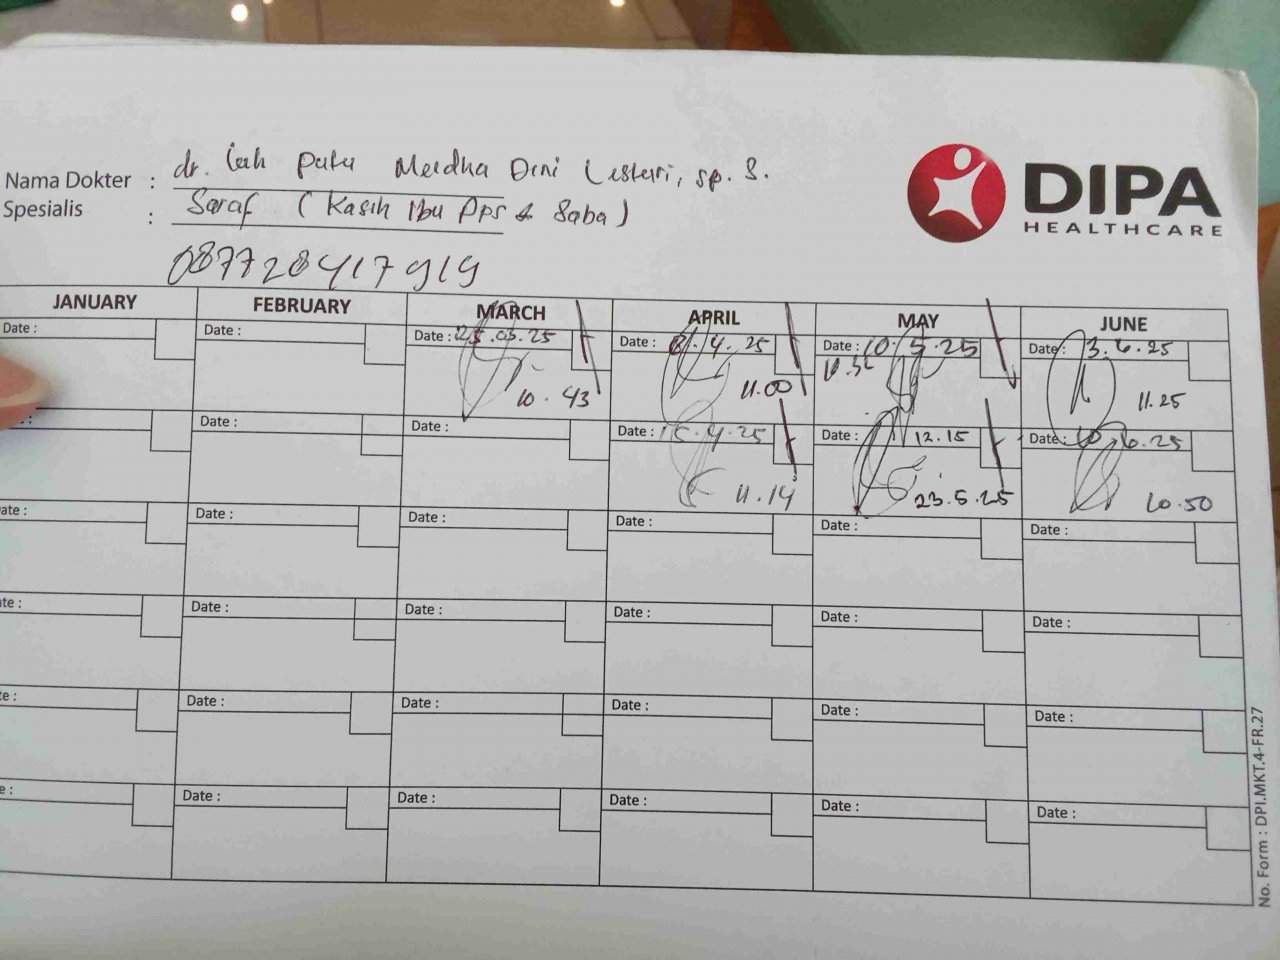 DIPA
HEALTHCARE
Nama Dokter : dr. Putu Merdha Dini Lestari, sp. S.
Spesialis : Saraf (Kasih Ibu Dps & Saba)
087728417919
JANUARY FEBRUARY MARCH APRIL MAY JUNE
Date : Date : Date : 25.03.25 Date : 8.4.25 Date : 10.5.25 Date : 3.6.25
10.43 11.00 11.25
Date : Date : Date : 15.4.25 Date : 12.15 Date : 10.6.25
11.14 23.5.25 10.50
ate : Date : Date : Date : Date : Date :
ate : Date : Date : Date : Date : Date :
te : Date : Date : Date : Date : Date :
e : Date : Date : Date : Date : Date :
No. Form : DPI.MKT.4-FR.27